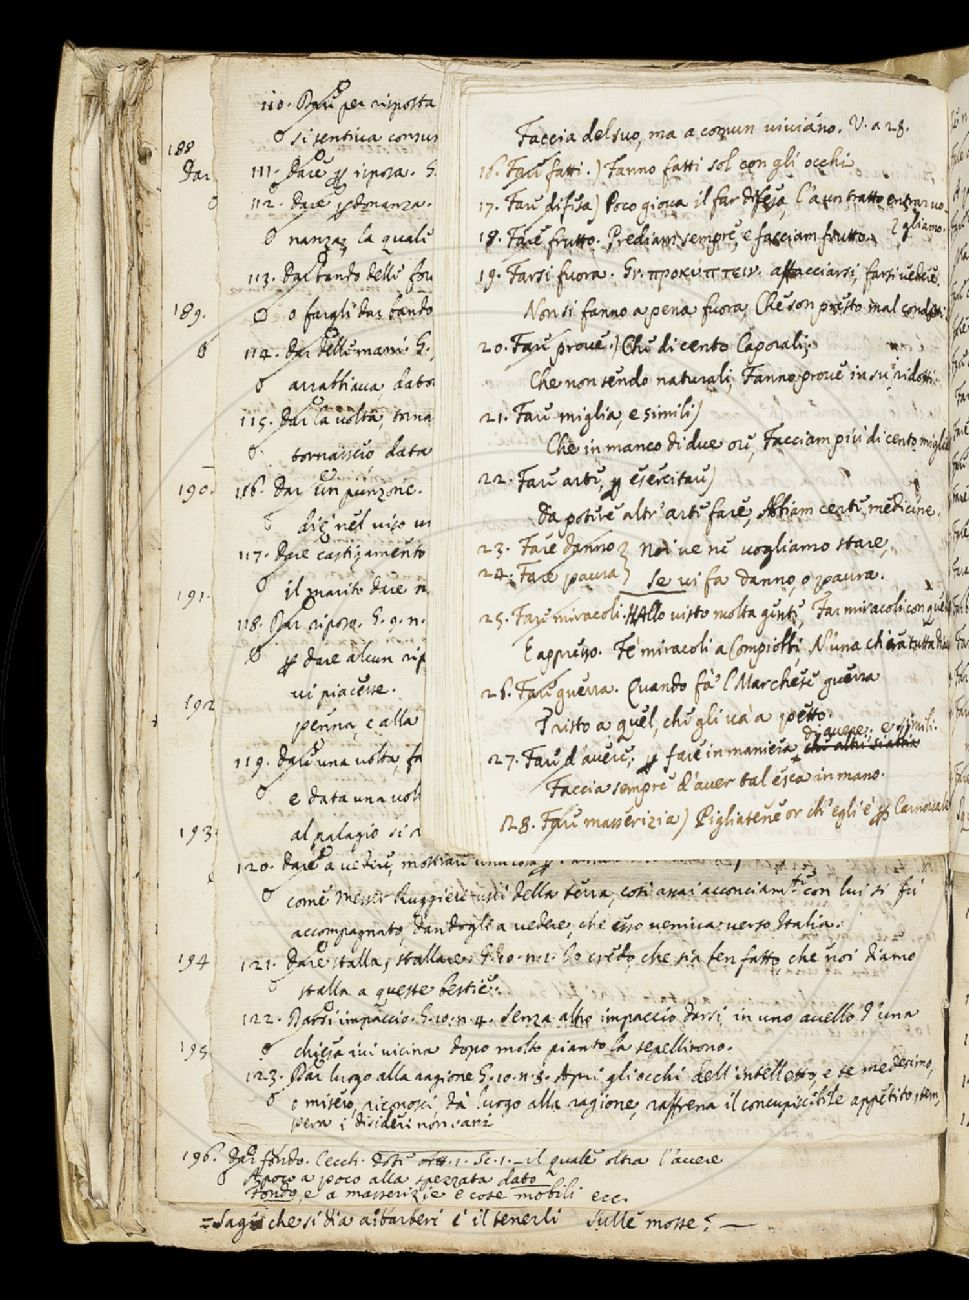 188
Dar
189.
190.
191.
192
193
194
195
110. Dare per risposta
si sentiva consu
111. Dare riposa. G.
112. Dare donanza.
nanza, la quale
113. Dar bando delle for
o fargli dar bando
114. Dar delle mani. G.
arrabbiava, dato
115. Dar la volta, torna
tornaisció data
116. Dar un punzone.
die nel viso un
117. Dare castigamento
il marito dare
118. Dar riposo. G. 9. n.
dare alcun rip
vi piacesse.
penna, e alla
119. Dare una volta, fa
e data una volt
al palagio si
Faccia del suo, ma a comun viviano. V. a 28.
16. Fare fatti.) Fanno fatti sol con gli occhi
17. Fare difesa) Poco giova il far difesa, l'a un tratto entrar vo
gliamo.
18. Fare frutto. Prediam sempre, e facciam frutto.
19. Farsi fuora. Gr. προκυπτειν. affacciarsi, farsi vedere.
Non si fanno a pena fuora, Che son presto mal condotti
20. Fare prove.) Che di cento Caporali,
Che non sendo naturali Fanno prove in su' ridotti.
21. Fare miglia, e simili)
Che in manco di due ore, Facciam più di cento miglia
22. Fare arte, esercitare)
Da potere altr' arte fare, Abbiam certe medicine.
23. Fare danno } Noi ve ne vogliamo stare,
24. Fare paura } Se vi fa danno, o paura.
25. Fare miracoli. Hallo visto molta gente, Far miracoli con
E appresso. Fè miracoli a Compiobbi, N'una ch' era tutta
26. Fare guerra. Quando fa 'l Marchese guerra
Tristo a quel, che gli va a petto.
d'avere, e simili.
27. Fare d'avere, fare in maniera,
Faccia sempre d'aver tal esca in mano.
128. Fare masserizia) Pigliatene or ch' egli è Carnovale
120. Dare a vedere, mostrare una cosa
come Messer Ruggieri uscì della terra, così assai acconciamte. con lui si fù
accompagnato, dandogli a vedere, che esso veniva verso Italia.
121. Dare stalla, stallare. G. 10. n. 1. Io credo, che sia ben fatto, che noi diamo
stalla a queste bestie.
122. Darsi impaccio. G. 10. n. 4. Senza altro impaccio darsi in uno avello d'una
chiesa ivi vicina dopo molto pianto la sepellirono.
123. Dar luogo alla ragione G. 10. n. 8. Apri gli occhi dell' intelletto, e te medesimo,
o misero, riconosci, dà luogo alla ragione, raffrena il concupiscibile appetito, tem,
pera i disideri non sani
196. Dar fondo. Cecch. Dote Att. 1. Sc. 1. — il quale oltra l'avere
A poco a poco alla spezzata dato
Fondo, e a masserizie e cose mobili ecc.
= Saggi che si dia a' barberi é il tenerli sulle mosse? —